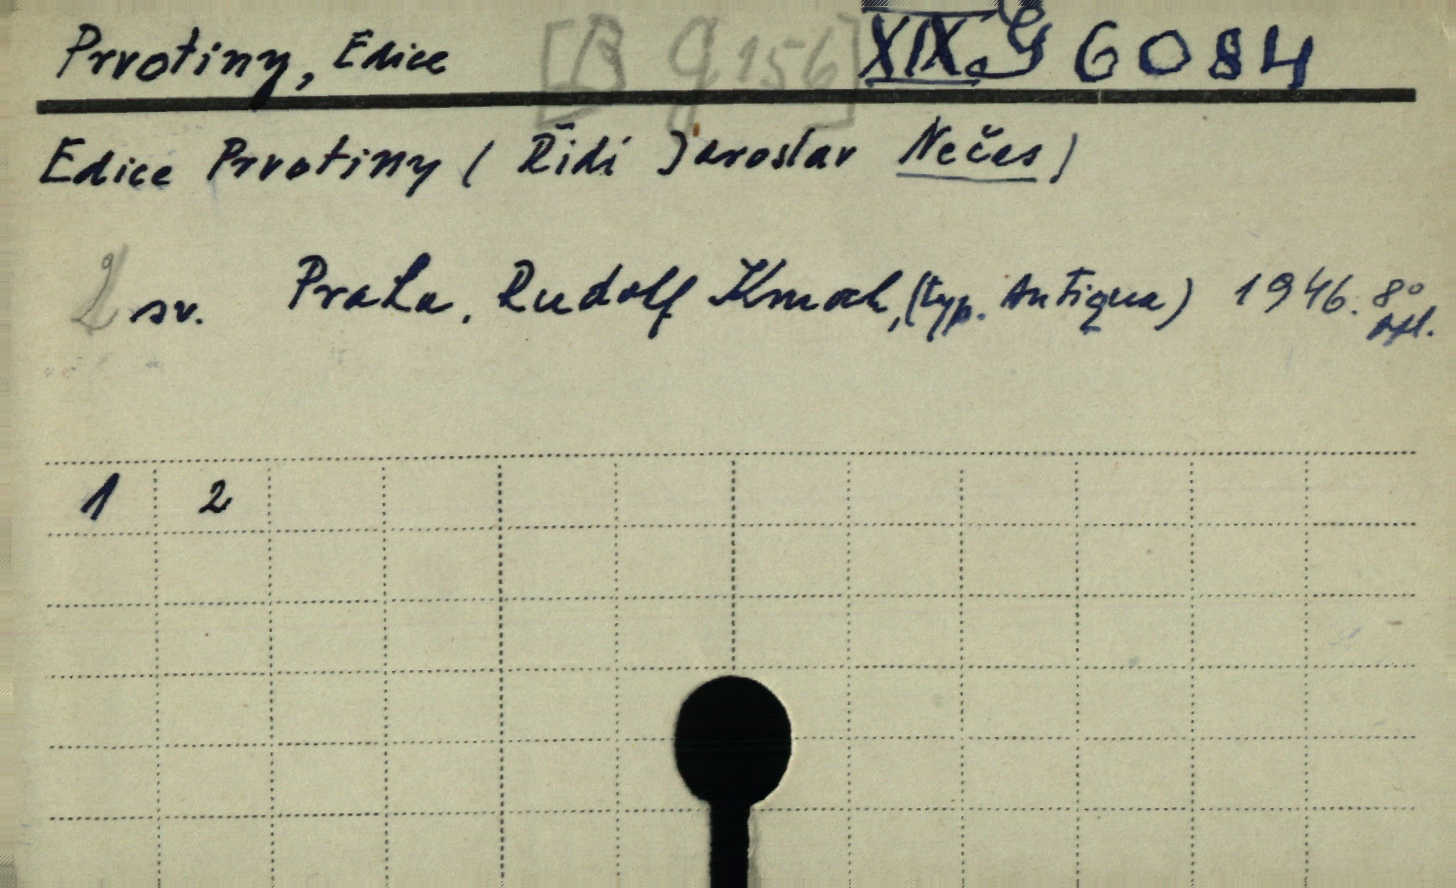 Prvotiny, Edice [B q 156] XIX.G 6084
Edice Prvotiny ( Řídí Jaroslav Nečas)
2 sv. Praha, Rudolf Kmoch, (typ. Antiqua) 1946. 8°
1 2